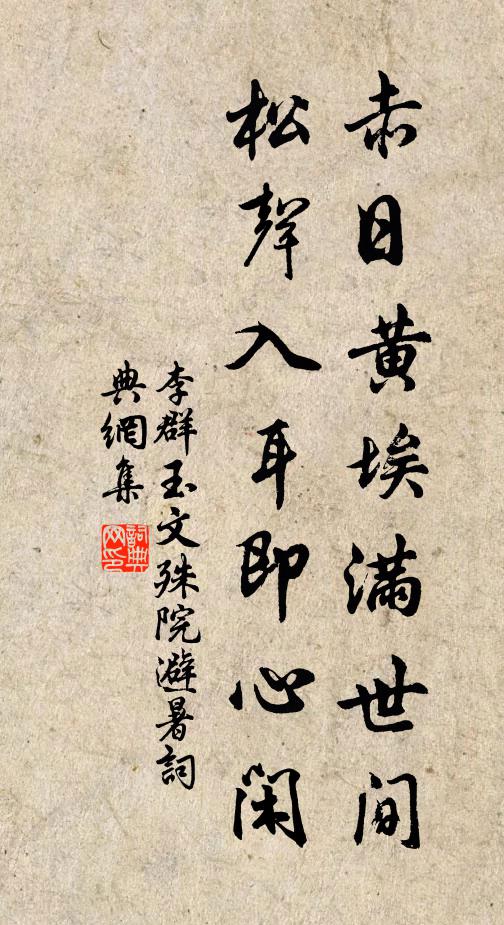 赤日黄埃满世间
松聲入耳即心閑
李群玉文殊院避暑詞
典網集
詞典网印